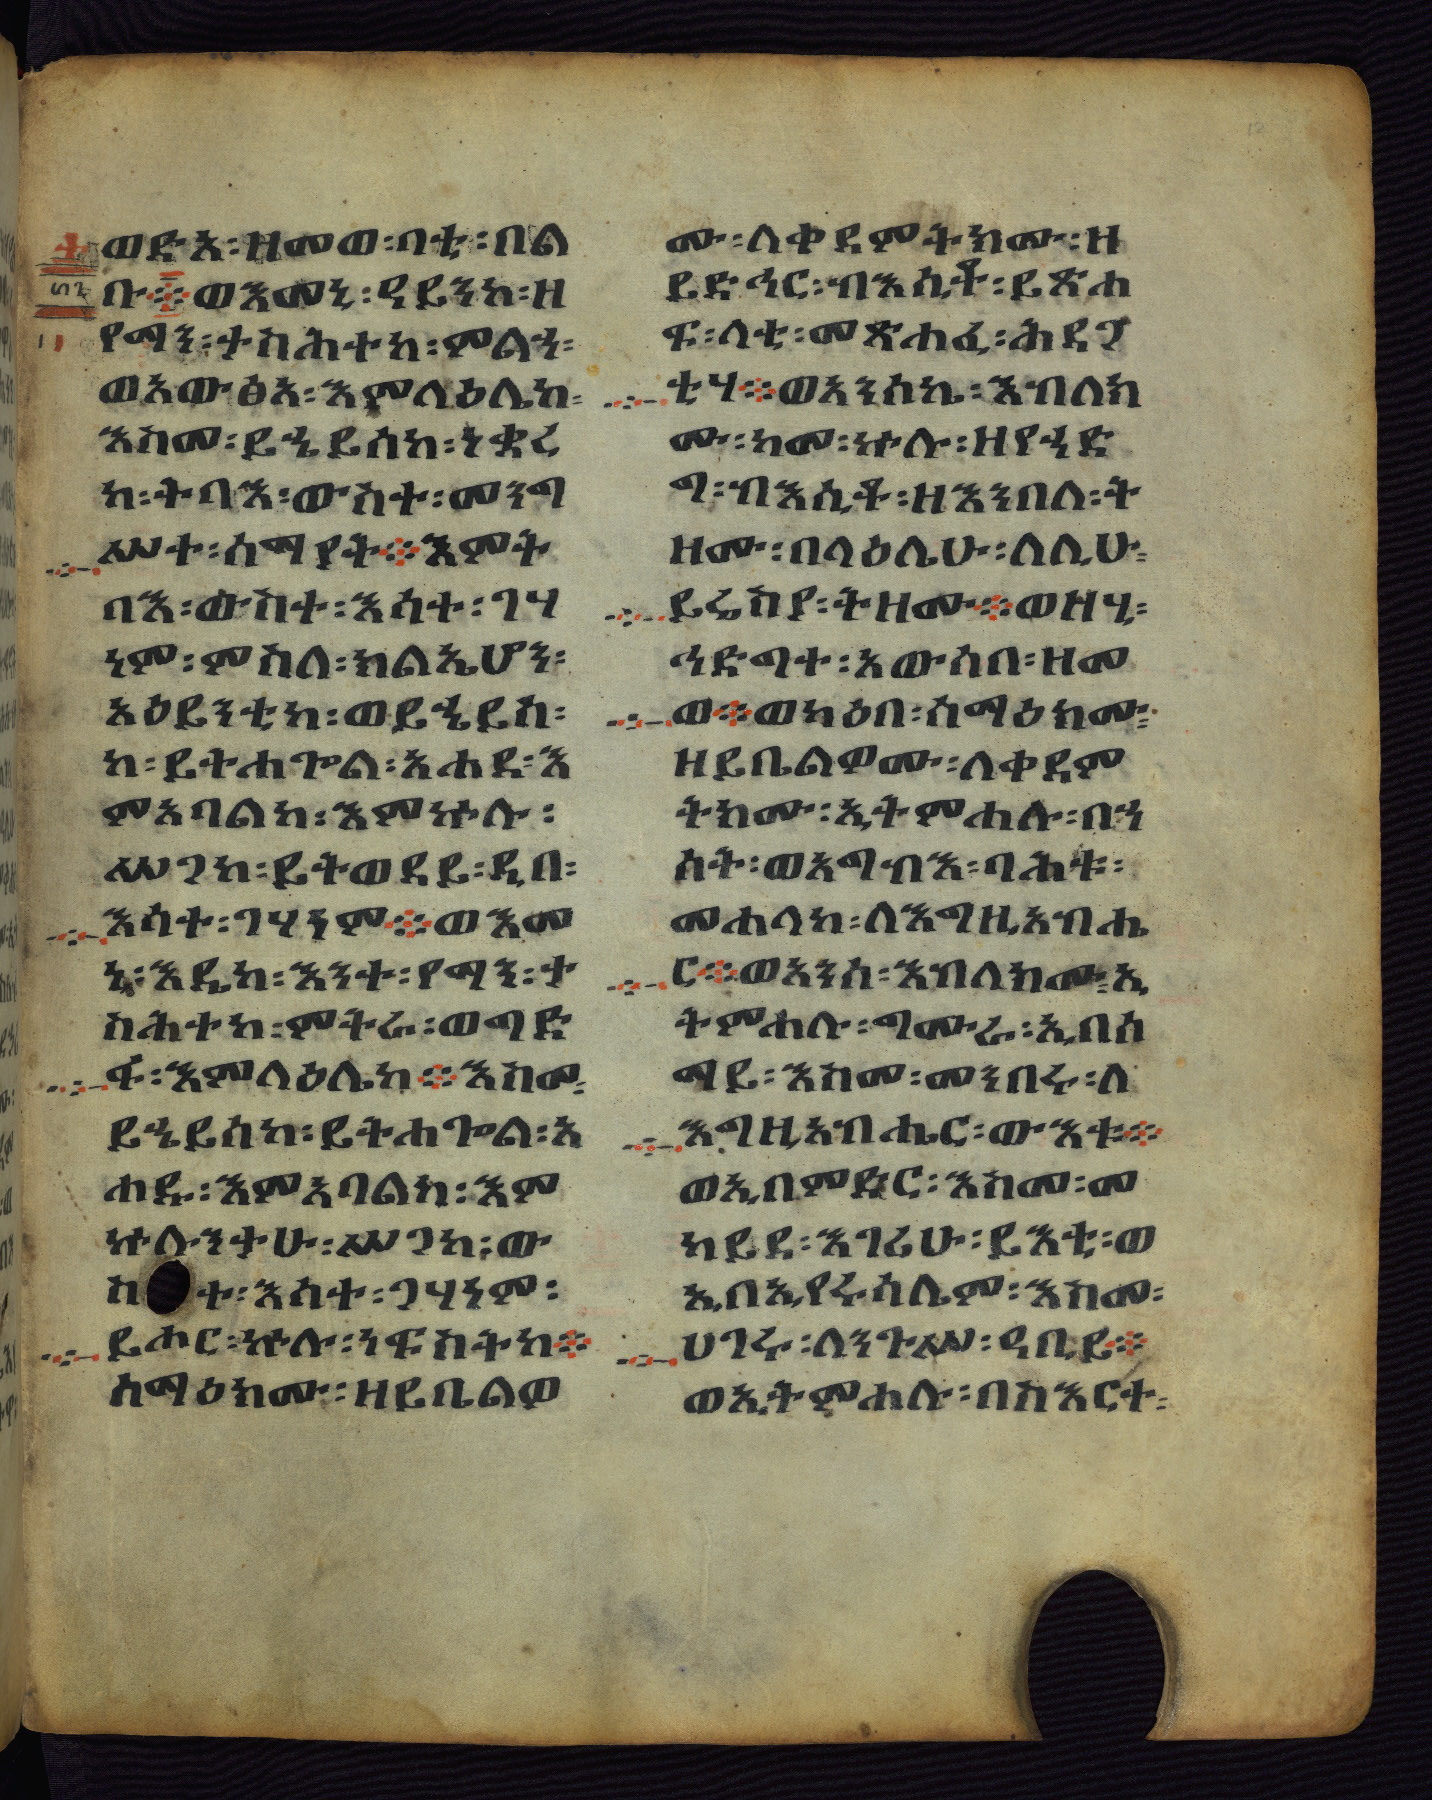 ወድአ፡ዘመወ፡ባቲ፡በል
ቡ፨ወእመኒ፡ዓይንከ፡ዘ
የማን፡ታስሕተከ፡ምልኃ፡
ወአውፅአ፡እምላዕሌከ፡
እስመ፡ይኄይሰከ፡ነቋረ
ከ፡ትባእ፡ውስተ፡መንግ
ሥተ፡ሰማያት፨እምት
ባእ፡ውስተ፡እሳተ፡ገሃ
ነም፡ምስለ፡ክልኤሆን፡
አዕይንቲከ፡ወይኄይሰ፡
ከ፡ይትሐጐል፡አሐዱ፡እ
ምአባልከ፡እምኵሉ፡
ሥጋከ፡ይትወደይ፡ዲበ፡
እሳተ፡ገሃነም፨ወእመ
ኒ፡እዴከ፡እንተ፡የማን፡ታ
ስሕተከ፡ምትራ፡ወግድ
ፋ፡እምላዕሌከ፨እስመ
ይኄይሰከ፡ይትሐጐል፡አ
ሐዱ፡እምአባልከ፡እም
ኵሉንታሁ፡ሥጋከ፡ው
ስተ፡እሳተ፡ገሃነም፡
ይሑር፡ኵሉ፡ነፍስትከ፨
ሰማዕክሙ፡ዘይቤልዎ
ሙ፡ለቀዳምትክሙ፡ዘ
ይድኅር፡ብእሲቶ፡ይጽሐ
ፍ፡ላቲ፡መጽሐፈ፡ሕዳጋ
ቲሃ፨ወአንሰኬ፡እብለክ
ሙ፡ከመ፡ኵሉ፡ዘየኃድ
ግ፡ብእሲቶ፡ዘእንበለ፡ት
ዘሙ፡በላዕሌሁ፡ለሊሁ፡
ይሬስያ፡ትዘሙ፨ወዘሂ፡
ኅድግተ፡አውሰበ፡ዘመ
ወ፨ወካዕበ፡ሰማዕክሙ፡
ዘይቤልዎሙ፡ለቀዳም
ትክሙ፡ኢትምሐሉ፡በሃ
ሰት፡ወአግብእ፡ባሕቱ፡
መሐላከ፡ለእግዚአብሔ
ር፨ወአንሰ፡እብለክሙ፡ኢ
ትምሐሉ፡ግሙራ፡ኢበሰ
ማይ፡እስመ፡መንበሩ፡ለ
እግዚአብሔር፡ውእቱ፨
ወኢበምድር፡እስመ፡መ
ከየደ፡እገሪሁ፡ይእቲ፡ወ
ኢበኢየሩሳሌም፡እስመ፡
ሀገሩ፡ለንጉሥ፡ዓቢይ፨
ወኢትምሐሉ፡በስእርተ፡